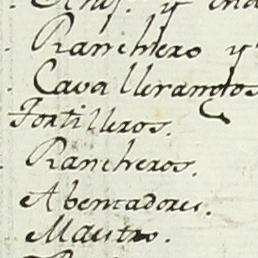 y
Ranchero y
Cavallerangos
Tortilleros.
Rancheros.
Abentadores.
Maestro.